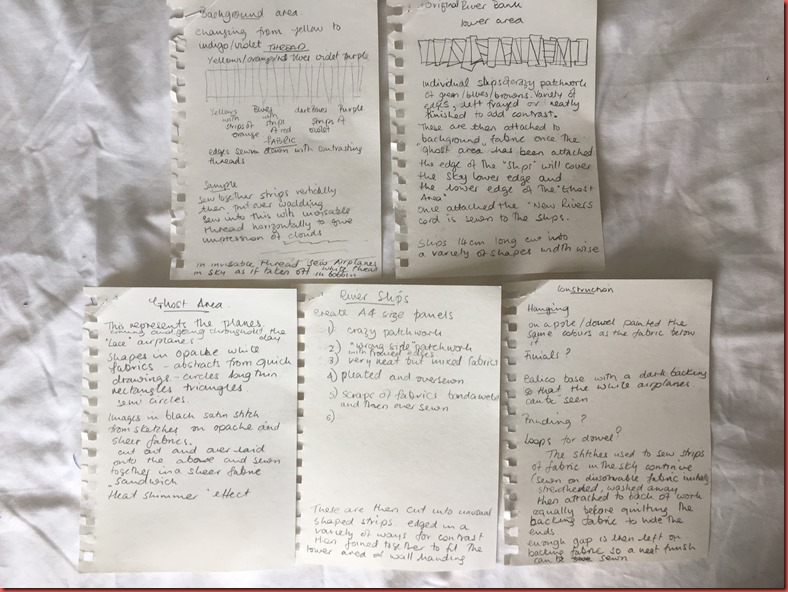 Background area.
changing from yellow to
indigo/violet THREAD
Yellows/orange/red blues violet purple
Yellows Blues dark blues Purple
with with strips of
strips of strips violet
orange of red
FABRIC
edges sewn down with contrasting
threads
Sample
sew together strips vertically
then put over wadding
sew into this with invisable
thread horizontally to give
impression of clouds
in invisable thread sew Airplanes
in sky as if taken off white thread
in bobbin
Original River Bank
lower area
Individual slips of crazy patchwork
of green/blues/browns. Variety of
edges, left frayed or neatly
finished to add contrast.
These are then attached to
background, fabric once the
"ghost area" has been attached
the edge of the "slips" will cover
the sky lower edge and
the lower edge of the "Ghost
Area"
once attached the "New Rivers
cord is sewn to the slips.
Slips 14cm long cut into
a variety of shapes width wise
"Ghost Area"
This represents the planes.
coming and going throughout the
day
"lace" airplanes.
Shapes in opaque white
fabrics - abstracts from quick
drawings - circles long thin
rectangles triangles
semi circles.
Images in black satin stitch
from sketches on opaque and
sheer fabrics.
cut out and over laid
onto the above and sewn
together in a sheer fabric
"sandwich"
"Heat shimmer" effect
River Slips
Create A4 size panels
1) crazy patchwork
2) "wrong side" patchwork
with frayed edges
3) very neat but mixed fabrics
4) pleated and oversewn
5) scraps of fabrics bondawebbed
and then over sewn
6)
These are then cut into unusual
shaped strips edged in a
variety of ways for contrast
then joined together to fit the
lower area of wall hanging
Construction
Hanging
on a pole/dowel painted the
same colours as the fabric below
it
Finials?
Calico base with a dark backing
so that the white airplanes
can be seen
Binding?
Loops for dowel?
The stitches used to sew strips
of fabric in the sky continue
(sewn on dissolvable fabric
washed away
then attached to back of work
equally before quilting the
backing fabric to hide the
ends
enough gap is then left on
backing fabric so a neat finish
can be sewn